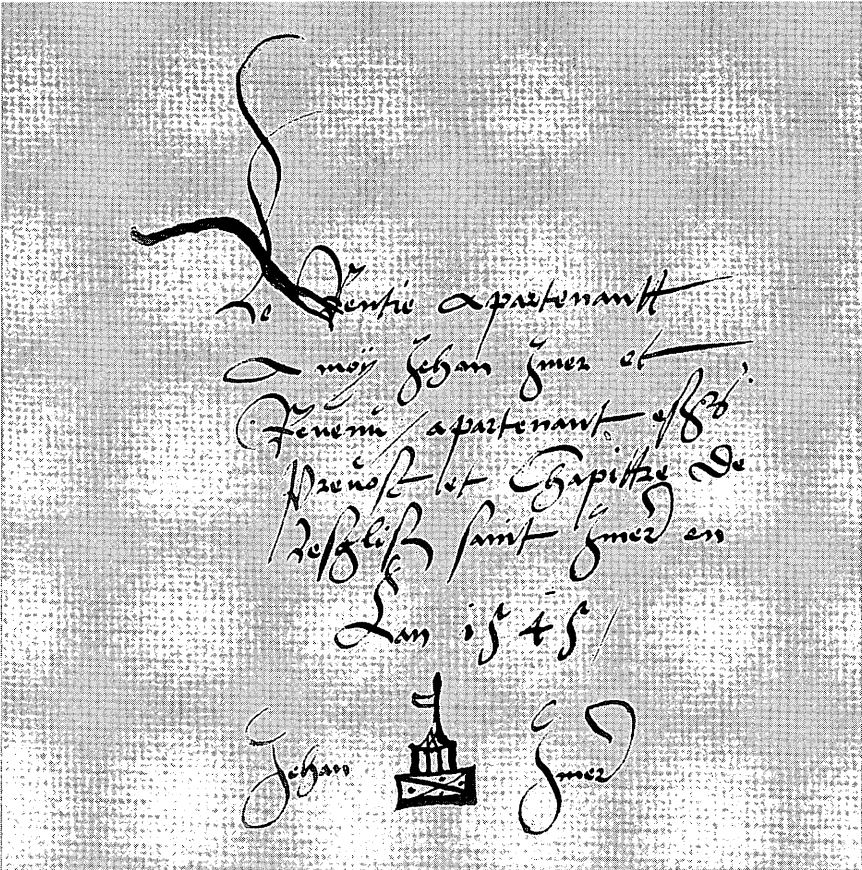 Le Rentie apartenantt
A moÿ Jehan Jmer et
Revenu / apartenant
Prevost et Chapittre De
lesglise saint Jmer en
Lan 1545 /
Jehan Jmer